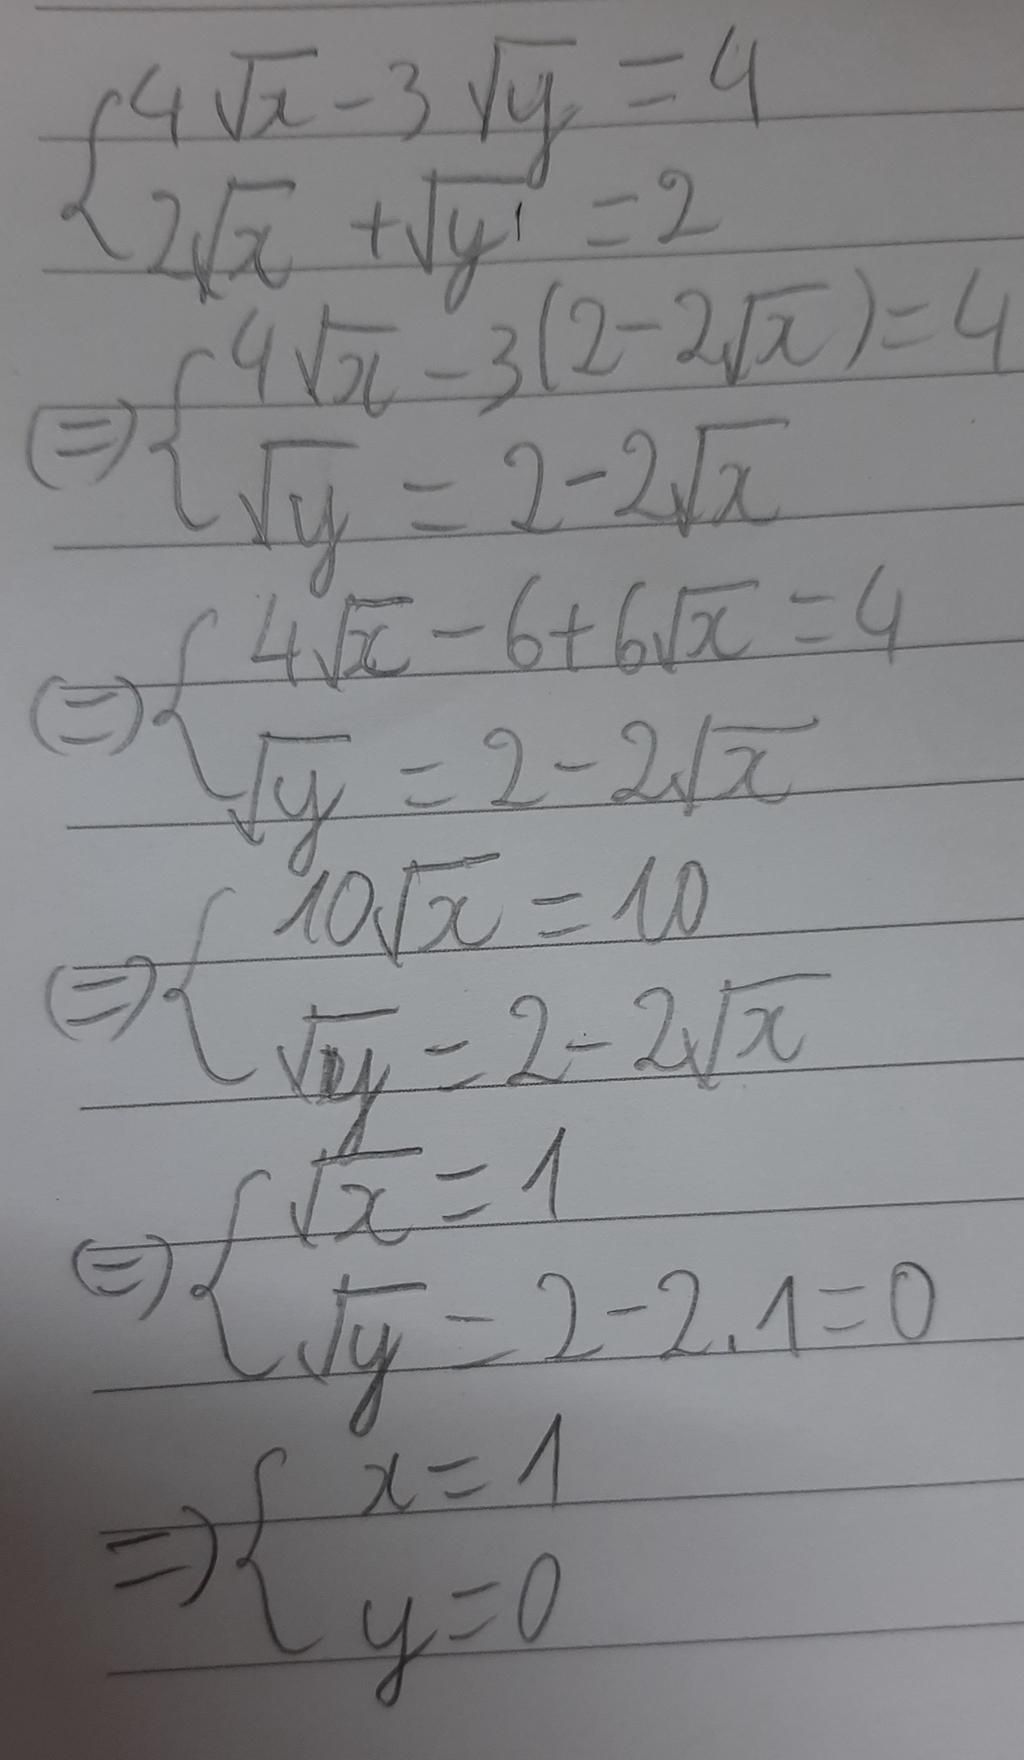 { 4√x - 3√y = 4
2√x + √y = 2
(=) { 4√x - 3(2 - 2√x) = 4
√y = 2 - 2√x
(=) { 4√x - 6 + 6√x = 4
√y = 2 - 2√x
(=) { 10√x = 10
√y = 2 - 2√x
(=) { √x = 1
√y = 2 - 2.1 = 0
=) { x = 1
y = 0